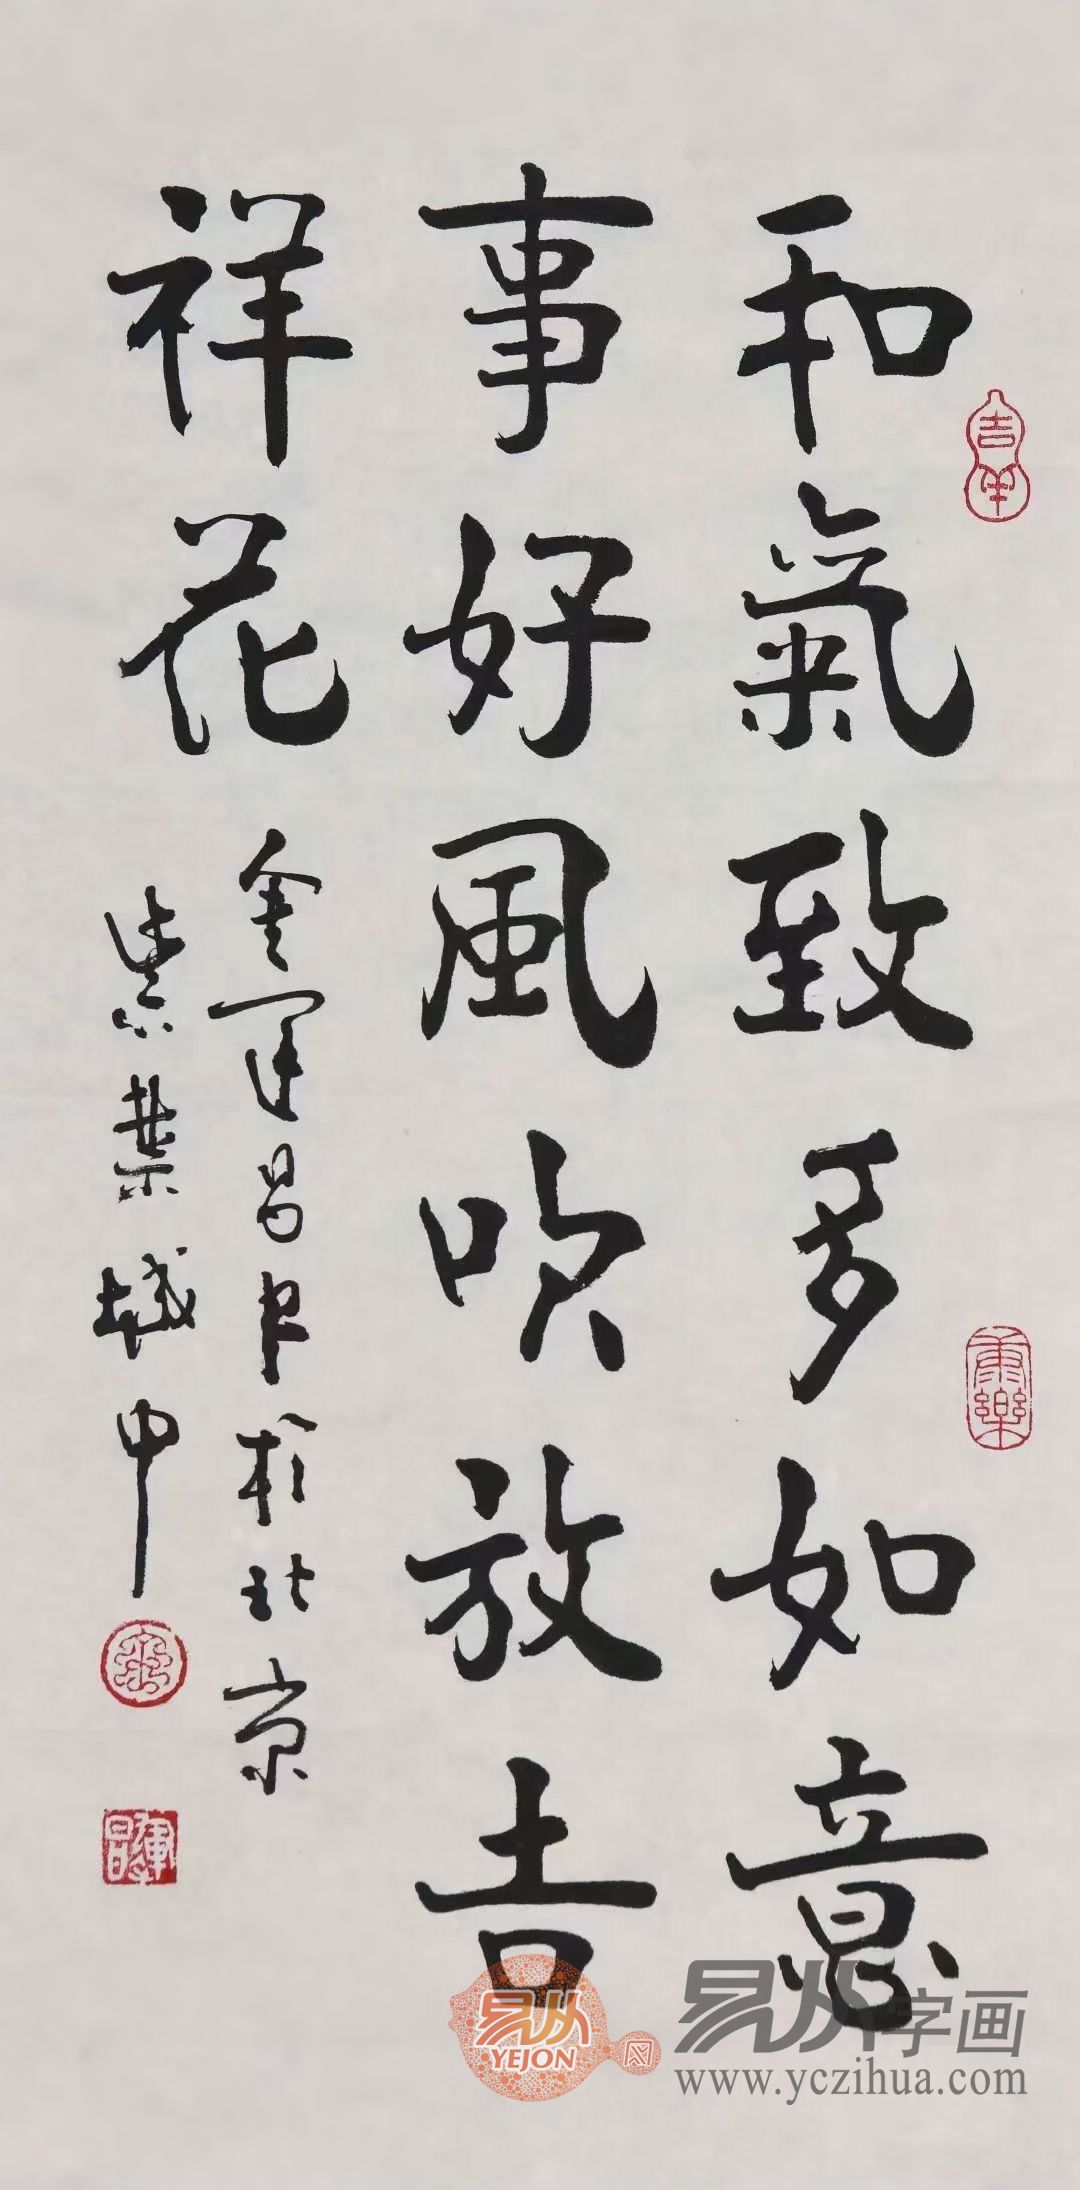 和氣致多如意
事好風吹放吉
祥花
金運昌书於北京
紫禁城中
吉羊
康樂
運昌
易从
YEJON
网
易从字画
www.yczihua.com